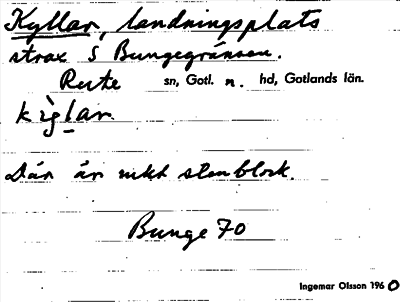 Kyllar, landningsplats
strax S Bungegränsen.
Rute sn, Gotl. n. hd, Gotlands län.
kìglar.
Där är mkt stenblock.
Bunge 70
Ingemar Olsson 1960